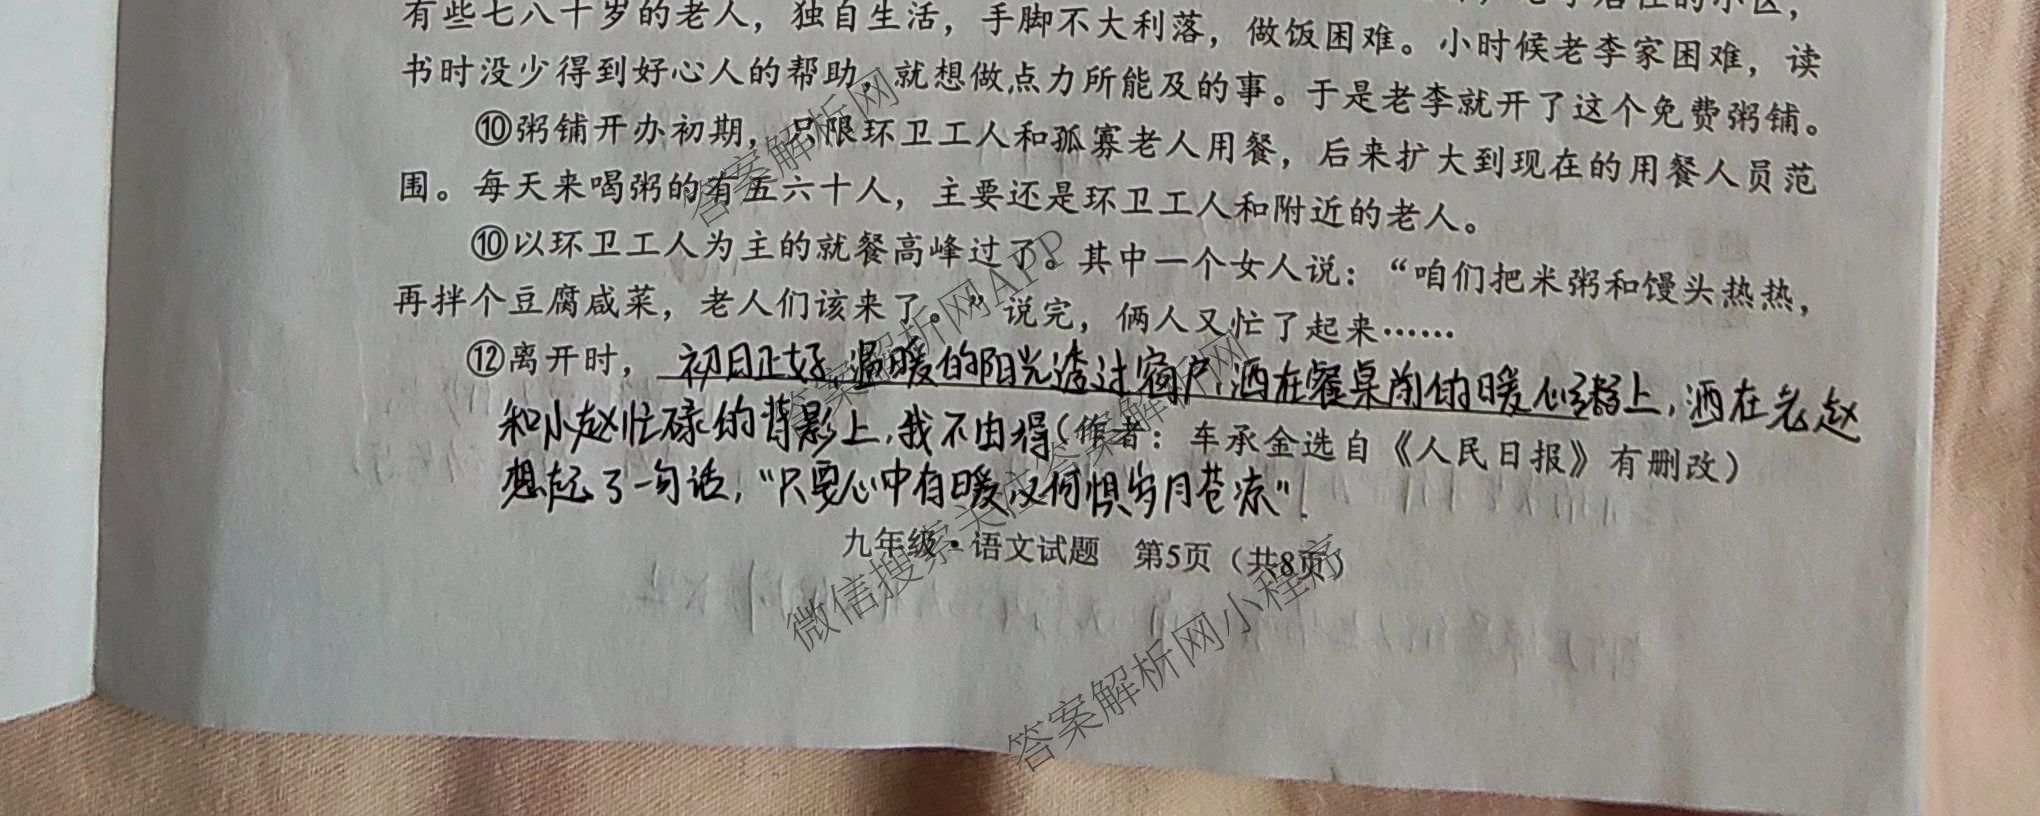 有些七八十岁的老人，独自生活，手脚不大利落，做饭困难。小时候老李家困难，读
书时没少得到好心人的帮助，就想做点力所能及的事。于是老李就开了这个免费粥铺。
⑩粥铺开办初期，只限环卫工人和孤寡老人用餐，后来扩大到现在的用餐人员范
围。每天来喝粥的有五六十人，主要还是环卫工人和附近的老人。
⑩以环卫工人为主的就餐高峰过了。其中一个女人说：“咱们把米粥和馒头热热，
再拌个豆腐咸菜，老人们该来了。”说完，俩人又忙了起来……
⑫离开时，初日正好，温暖的阳光透过窗户，洒在餐桌前的暖心粥上，洒在老赵
和小赵忙碌的背影上，我不由得（作者：车承金选自《人民日报》有删改）
想起了一句话，“只要心中有暖，又何惧岁月苍凉”！
九年级·语文试题 第5页（共8页）
答案解析网
答案解析网APP
微信搜索关注答案解析网
答案解析网小程序